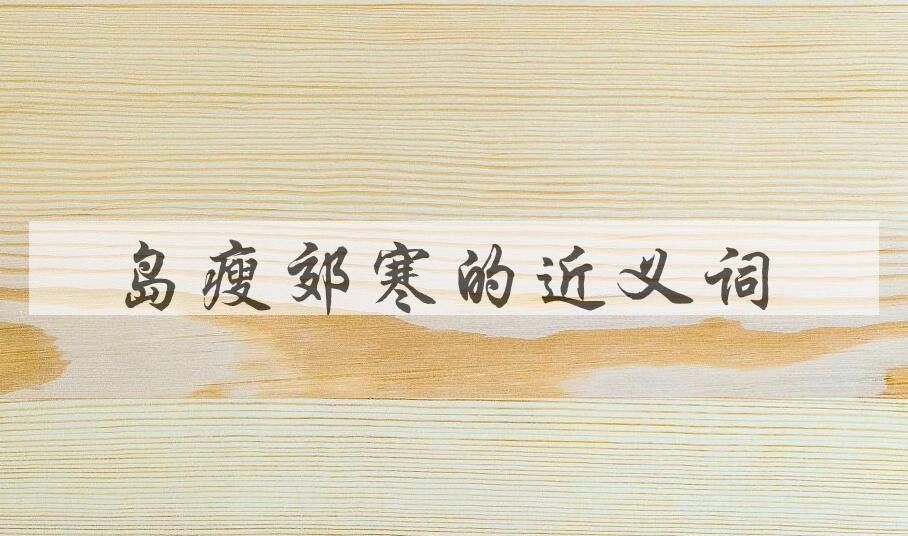 岛瘦郊寒的近义词